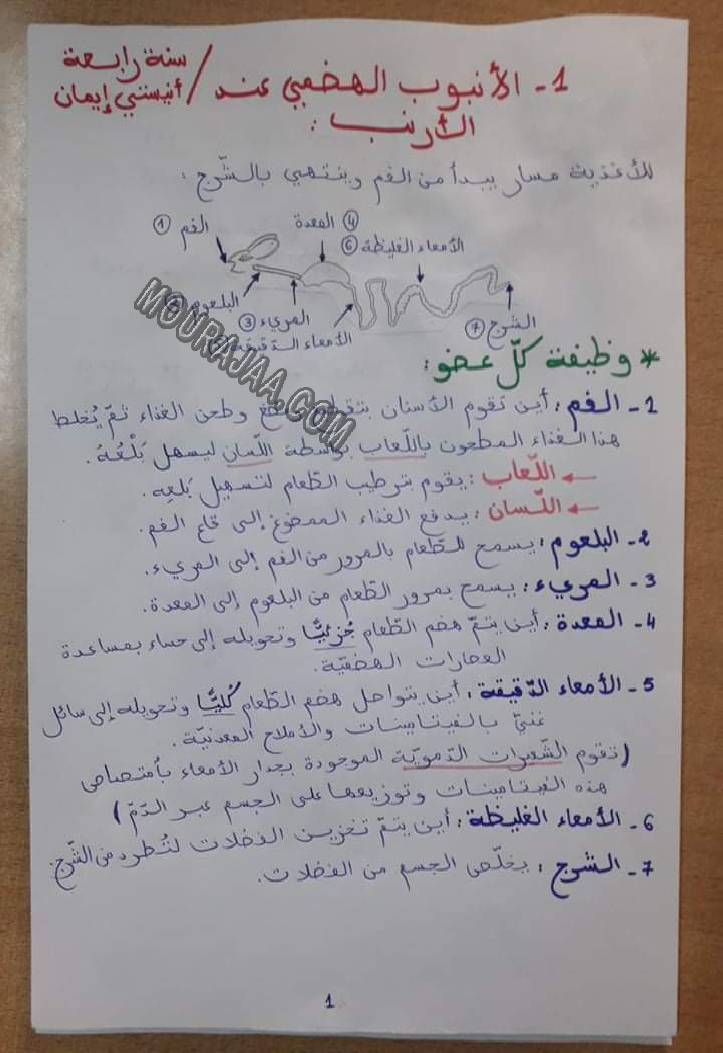 سنة رابعة
1- الأنبوب الهضمي عند / أنيستي إيمان
الأرنب :
للأغذية مسار يبدأ من الفم وينتهي بالشّرج :
① الفم
④ المعدة
⑥ الأمعاء الغليظة
البلعوم
③ المريء
الأمعاء الدّقيقة
⑦ الشرج
MOURAJAA.COM
* وظيفة كلّ عضو :
1- الفم : أين تقوم الأسنان وطحن الغذاء ثمّ يُخلط
هذا الغذاء المطحون باللّعاب بواسطة اللّسان ليسهل بَلْعُهُ.
← اللّعاب : يقوم بترطيب الطّعام لتسهيل بَلعِه.
← اللّسان : يدفع الغذاء الممضوغ إلى قاع الفم.
2- البلعوم : يسمح للطّعام بالمرور من الفم إلى المريء.
3- المريء : يسمح بمرور الطّعام من البلعوم إلى المعدة.
4- المعدة : أين يتمّ هضم الطّعام جُزئيًّا وتحويله إلى حساء بمساعدة
العصارات الهضميّة.
5- الأمعاء الدّقيقة : أين يتواصل هضم الطّعام كُليًّا وتحويله إلى سائل
غنيّ بالفيتامينات والأملاح المعدنيّة.
(تقوم الشّعيرات الدّمويّة الموجودة بجدار الأمعاء بامتصاص
هذه الفيتامينات وتوزيعها على الجسم عبر الدّم)
6- الأمعاء الغليظة : أين يتمّ تخزين الفضلات لتُطرد من الشّرج.
7- الشرج : يخلّص الجسم من الفضلات.
1